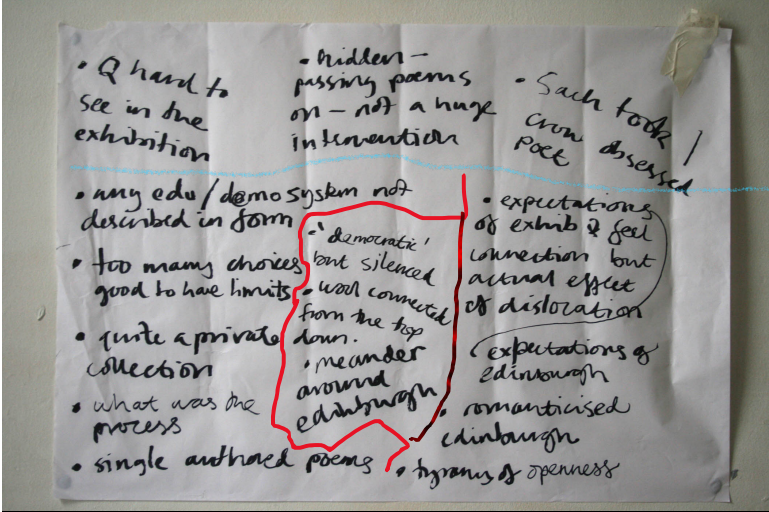 • Q hard to
see in the
exhibition
• hidden –
passing poems
on – not a huge
intervention
• Sach took /
crow obsessed
poet
• any edu / demo system not
described in form
• too many choices
good to have limits
• quite a private
collection
• what was the
process
• single authored poems
• 'democratic'
but silenced
• wool connected
from the top
down.
• meander
around
edinburgh
• expectations
of exhib & feel
connection but
actual effect
of dislocation
expectations of
edinburgh
• romanticised
edinburgh
• tyranny of openness